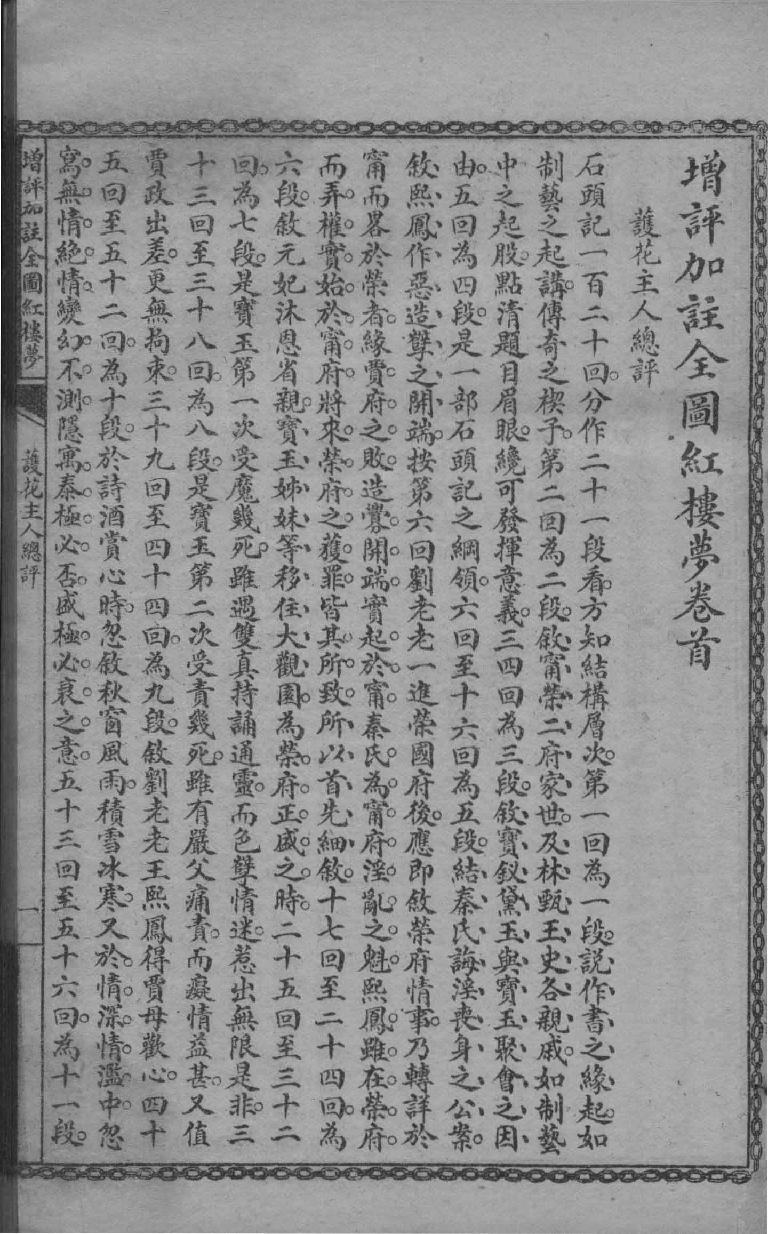 增評加註全圖紅樓夢卷首
護花主人總評
石頭記一百二十回分作二十一段看方知結構層次第一回為一段說作書之緣起如
制藝之起講傳奇之楔子第二回為二段敘甯榮二府家世及林甄王史各親戚如制藝
中之起股點清題目眉眼纔可發揮意義三四回為三段敘寶釵黛玉與寶玉聚會之因
由五回為四段是一部石頭記之綱領六回至十六回為五段結秦氏誨淫喪身之公案
敘熙鳳作惡造孽之開端按第六回劉老老一進榮國府後應即敘榮府情事乃轉詳於
甯而畧於榮者緣賈府之敗造釁開端實起於甯秦氏為甯府淫亂之魁熙鳳雖在榮府
而弄權實始於甯府將來榮府之獲罪皆其所致所以首先細敘十七回至二十四回為
六段敘元妃沐恩省親寶玉姊妹等移住大觀園為榮府正盛之時二十五回至三十二
回為七段是寶玉第一次受魔幾死雖遇雙真持誦通靈而色孽情迷惹出無限是非三
十三回至三十八回為八段是寶玉第二次受責幾死雖有嚴父痛責而癡情益甚又值
賈政出差更無拘束三十九回至四十四回為九段敘劉老老王熙鳳得賈母歡心四十
五回至五十二回為十段於詩酒賞心時忽敘秋窗風雨積雪冰寒又於情深情濫中忽
寫無情絕情變幻不測隱寓泰極必否盛極必衰之意五十三回至五十六回為十一段
增評加註全圖紅樓夢
護花主人總評
一